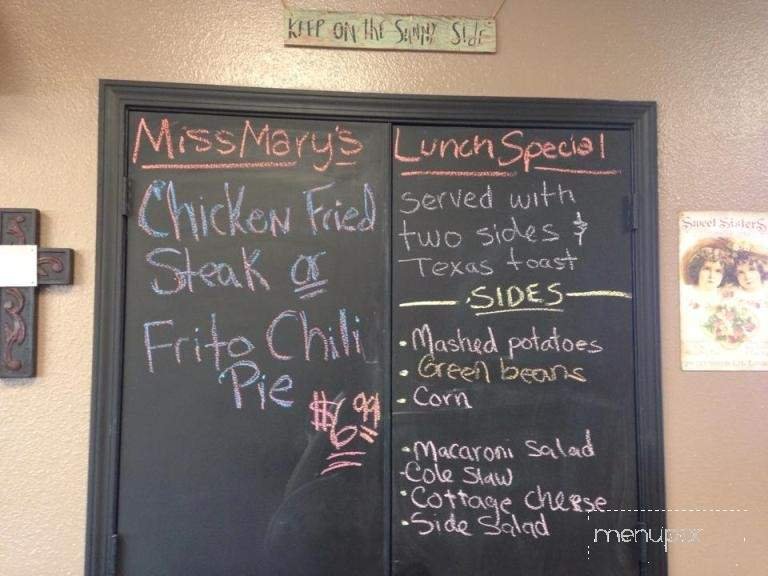 KEEP ON THE SUNNY SIDE
Miss Mary's
Chicken Fried
Steak or
Frito Chili
Pie
$6.99
Lunch Special
served with
two sides &
Texas toast
SIDES
• Mashed potatoes
• Green beans
• Corn
• Macaroni Salad
• Cole Slaw
• Cottage Cheese
• Side Salad
Sweet Sisters
menupix